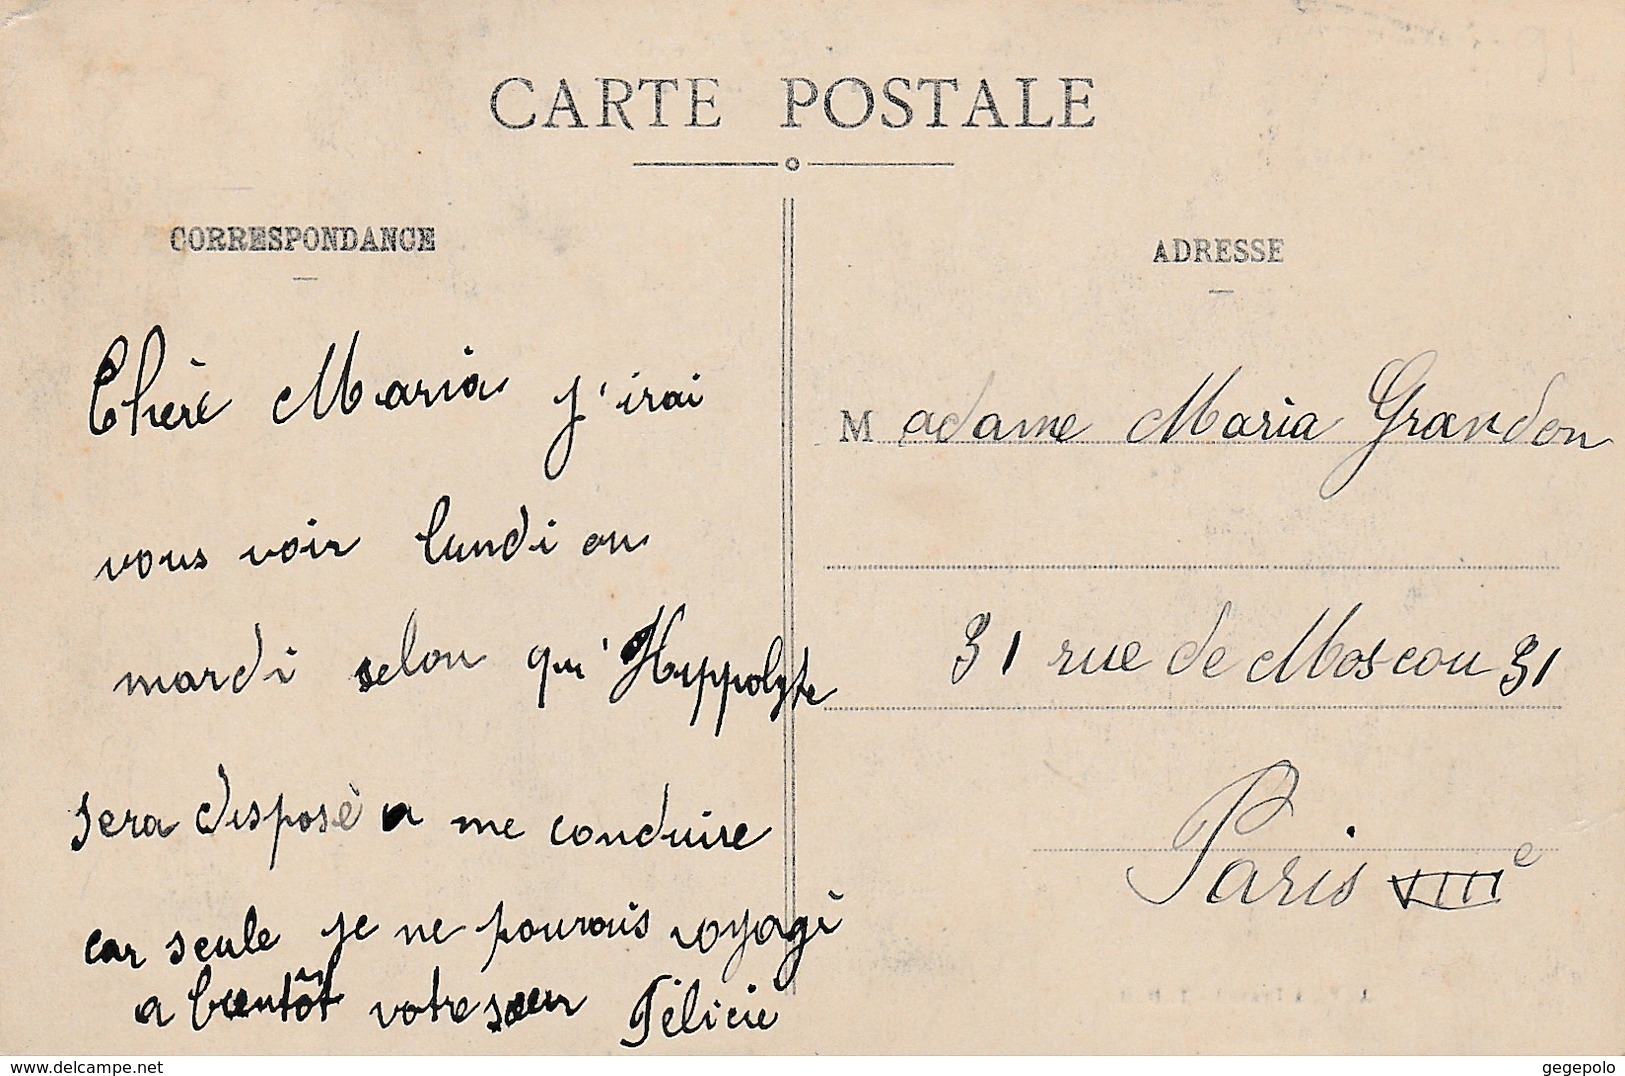 CARTE POSTALE
CORRESPONDANCE
Chère Maria j'irai
vous voir lundi ou
mardi selon qu'Hyppolyte
sera disposè a me conduire
car seule je ne pourais voyagè
a bientôt votre sœur Félicie
ADRESSE
Madame Maria Grandon
31 rue de Moscou 31
Paris VIIIe
www.delcampe.net
gegepolo